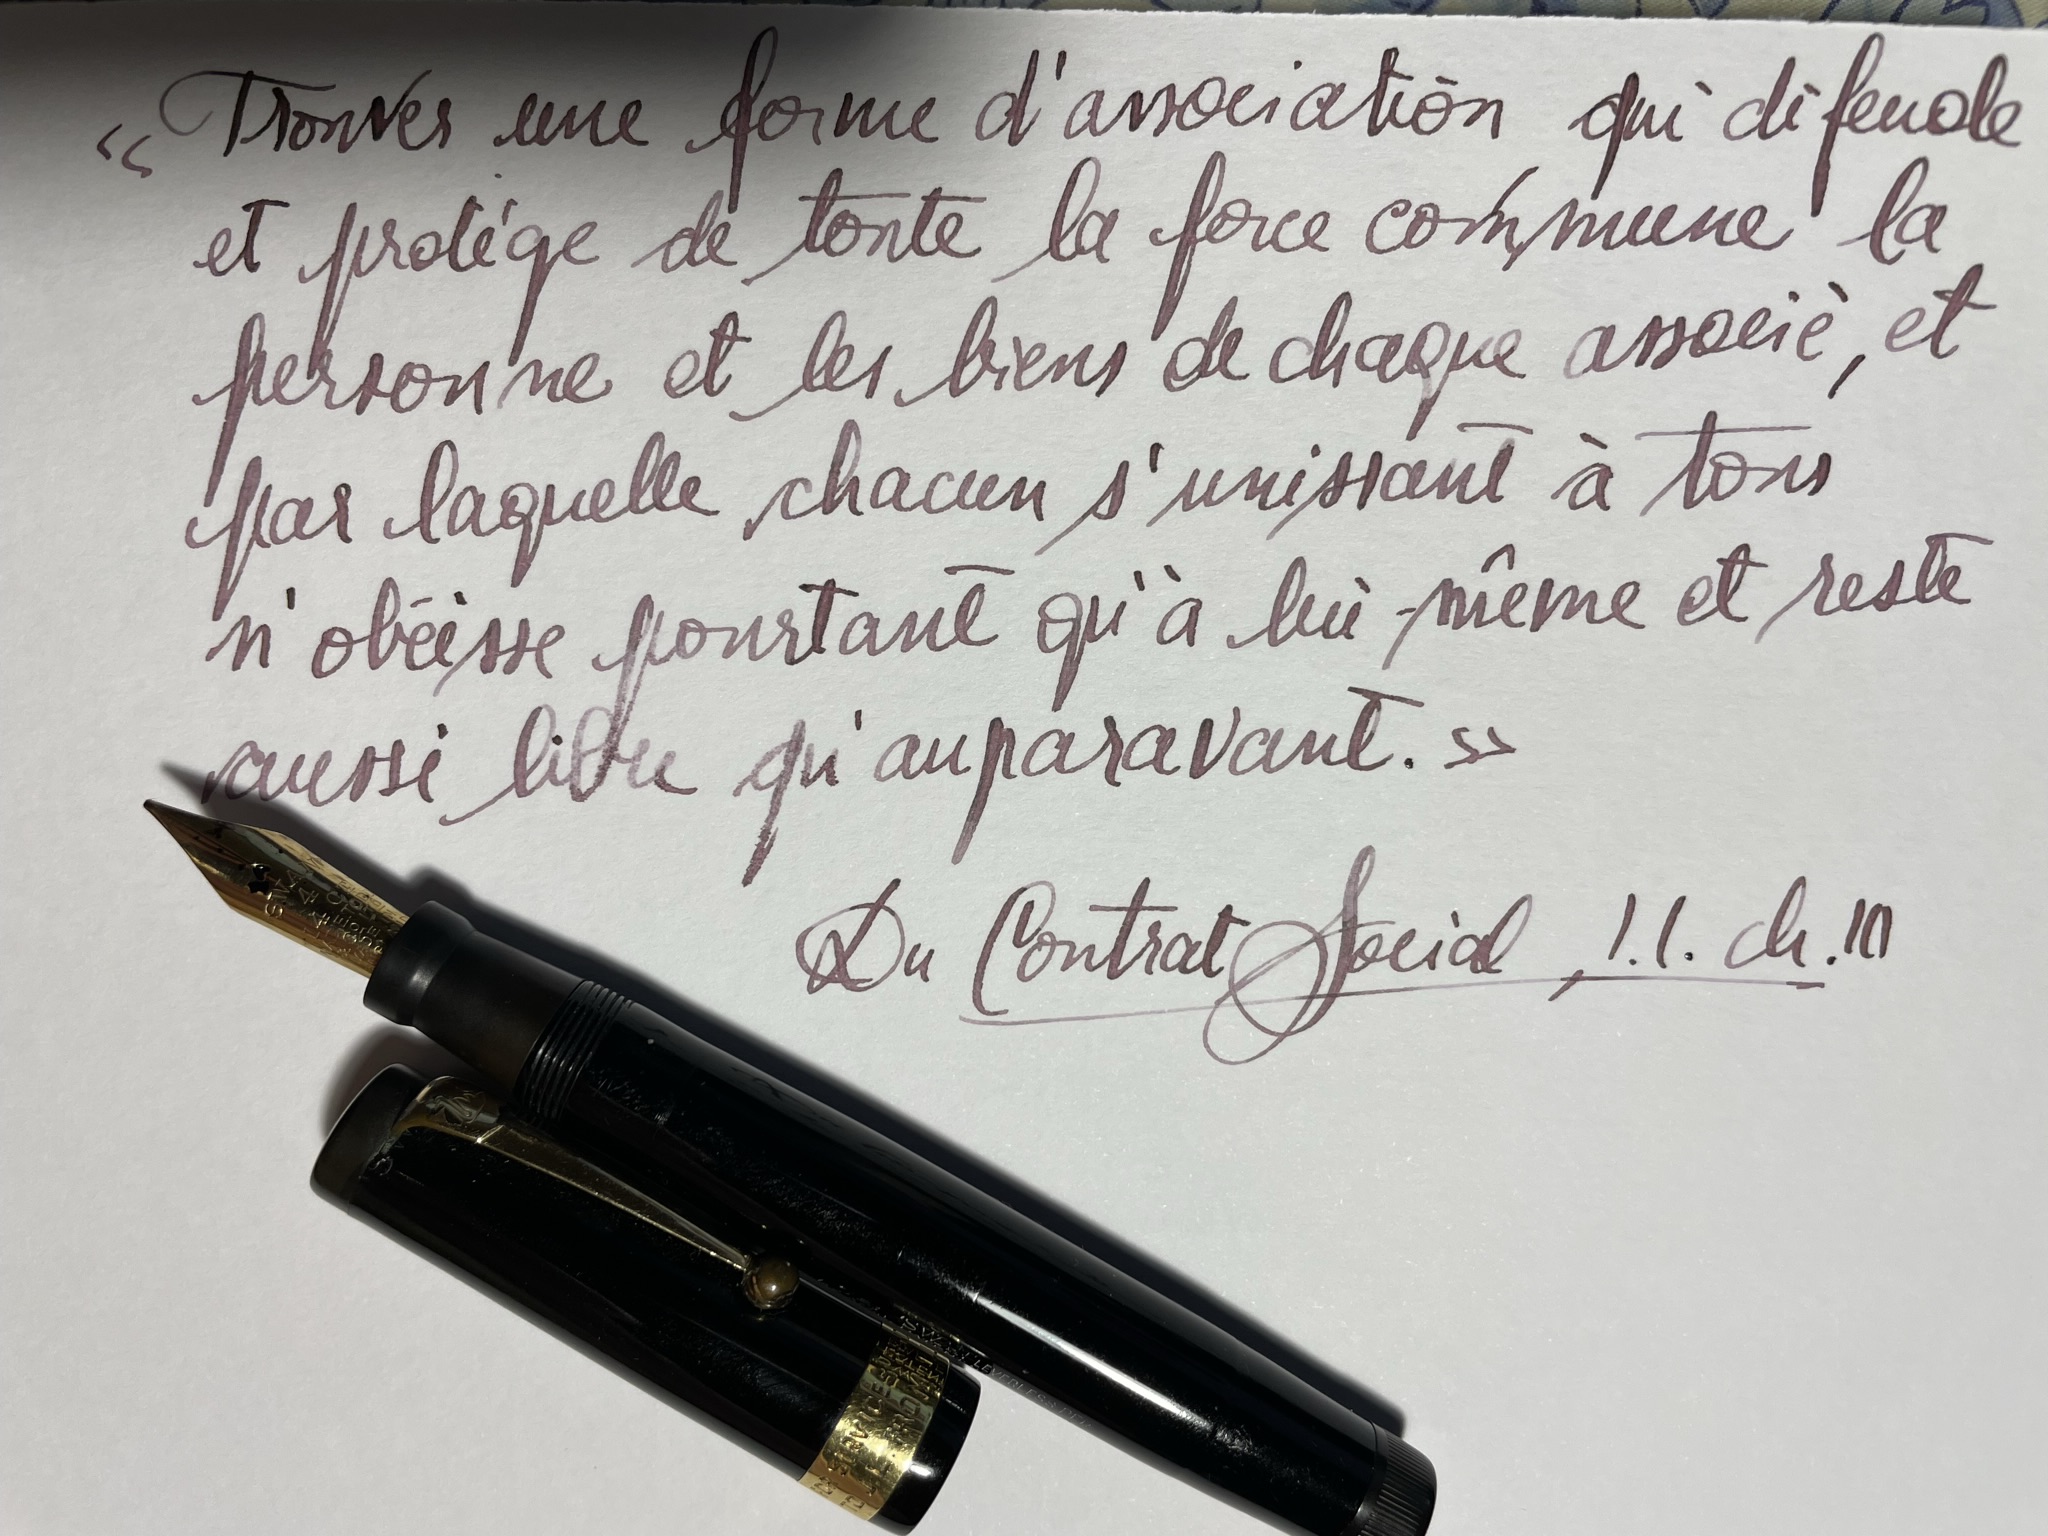 « Trouver une forme d'association qui défende
et protége de toute la force commune la
personne et les biens de chaque associé, et
par laquelle chacun s'unissant à tous
n'obéisse pourtant qu'à lui-même et reste
aussi libre qu'auparavant. »
Du Contrat Social, l.I. ch.
SWAN